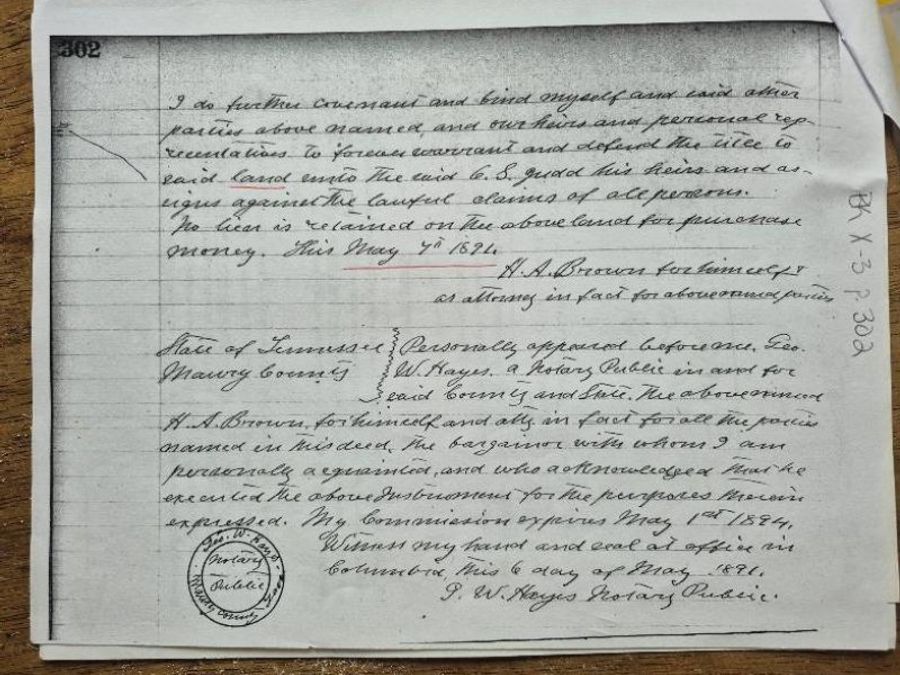 302
I do further covenant and bind myself and said other
parties above named, and our heirs and personal rep-
resentatives to forever warrant and defend the title to
said land unto the said C. S. Judd his heirs and as-
signs against the lawful claims of all persons.
No lien is retained on the above land for purchase
money. This May 7th 1891.
H. A. Brown for himself &
as attorney in fact for above named parties
State of Tennessee
Maury County
Personally appeared before me, Geo.
W. Hayes, a Notary Public in and for
said County and State, the above named
H. A. Brown, for himself and atty in fact for all the parties
named in this deed, the bargainor with whom I am
personally acquainted, and who acknowledged that he
executed the above Instrument for the purposes therein
expressed. My Commission expires May 1st 1894.
Witness my hand and seal at office in
Columbia, this 6 day of May 1891.
G. W. Hayes Notary Public.
Geo. W. Hays
Notary
Public
Maury County
Bk X-3 p 302